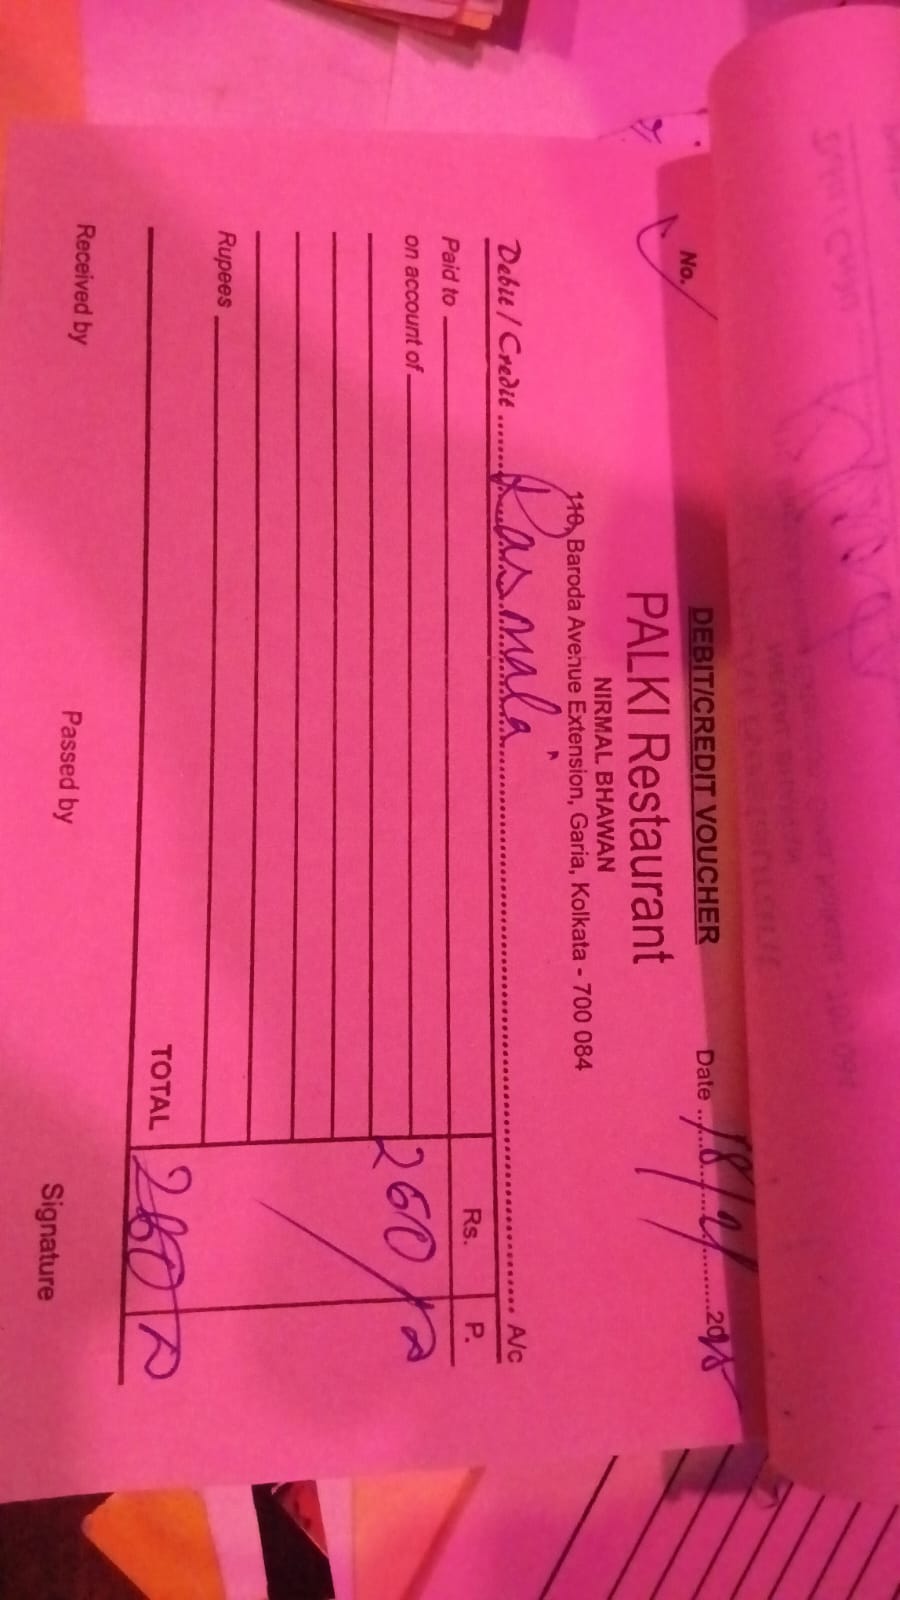 DEBIT/CREDIT VOUCHER
No. Date 18/2/2025
PALKI Restaurant
NIRMAL BHAWAN
110, Baroda Avenue Extension, Garia, Kolkata - 700 084
Debit / Credit Kasmala A/c
Paid to Rs. P.
on account of
260/-
Rupees
TOTAL 260/-
Received by Passed by Signature